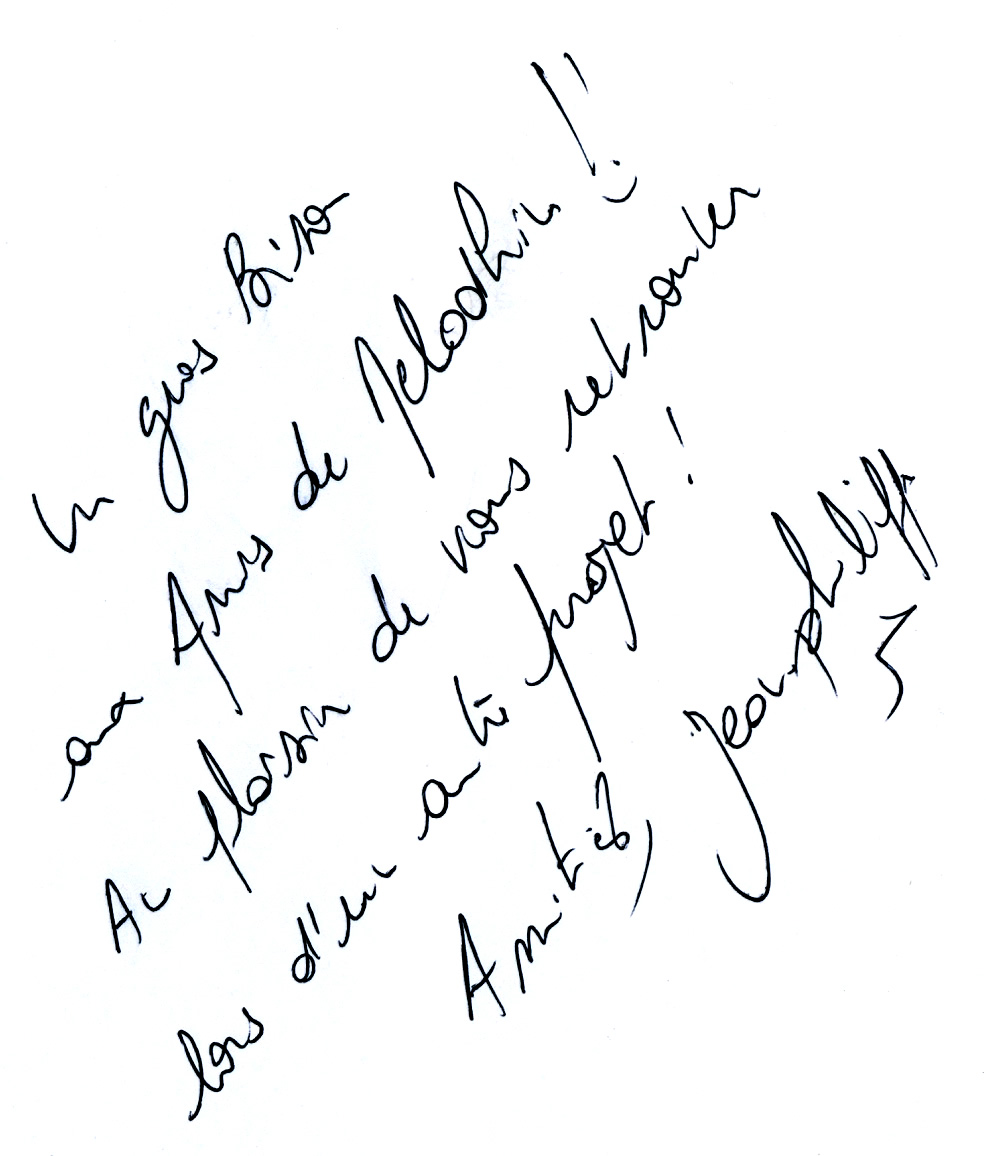 Un gros Biso
aux Amis de Melodhin !!
Au plaisir de vous retrouver
lors d'un autre projet !
Amitiés,
Jean-philippe